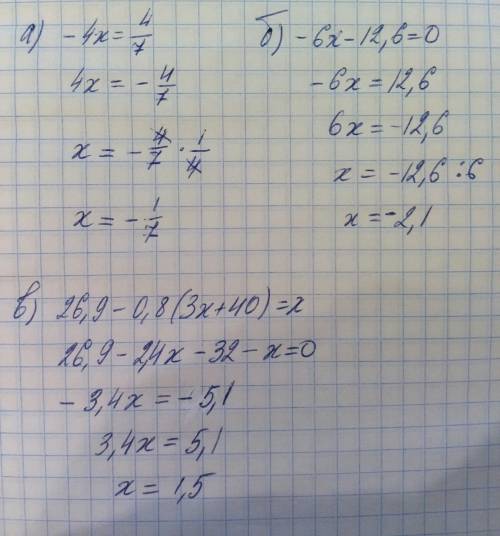 а) -4x = 4/7
4x = - 4/7
x = - 4/7 · 1/4
x = - 1/7
б) -6x-12,6=0
-6x=12,6
6x=-12,6
x = -12,6:6
x=-2,1
в) 26,9-0,8(3x+40)=x
26,9-2,4x-32-x=0
-3,4x=-5,1
3,4x=5,1
x=1,5